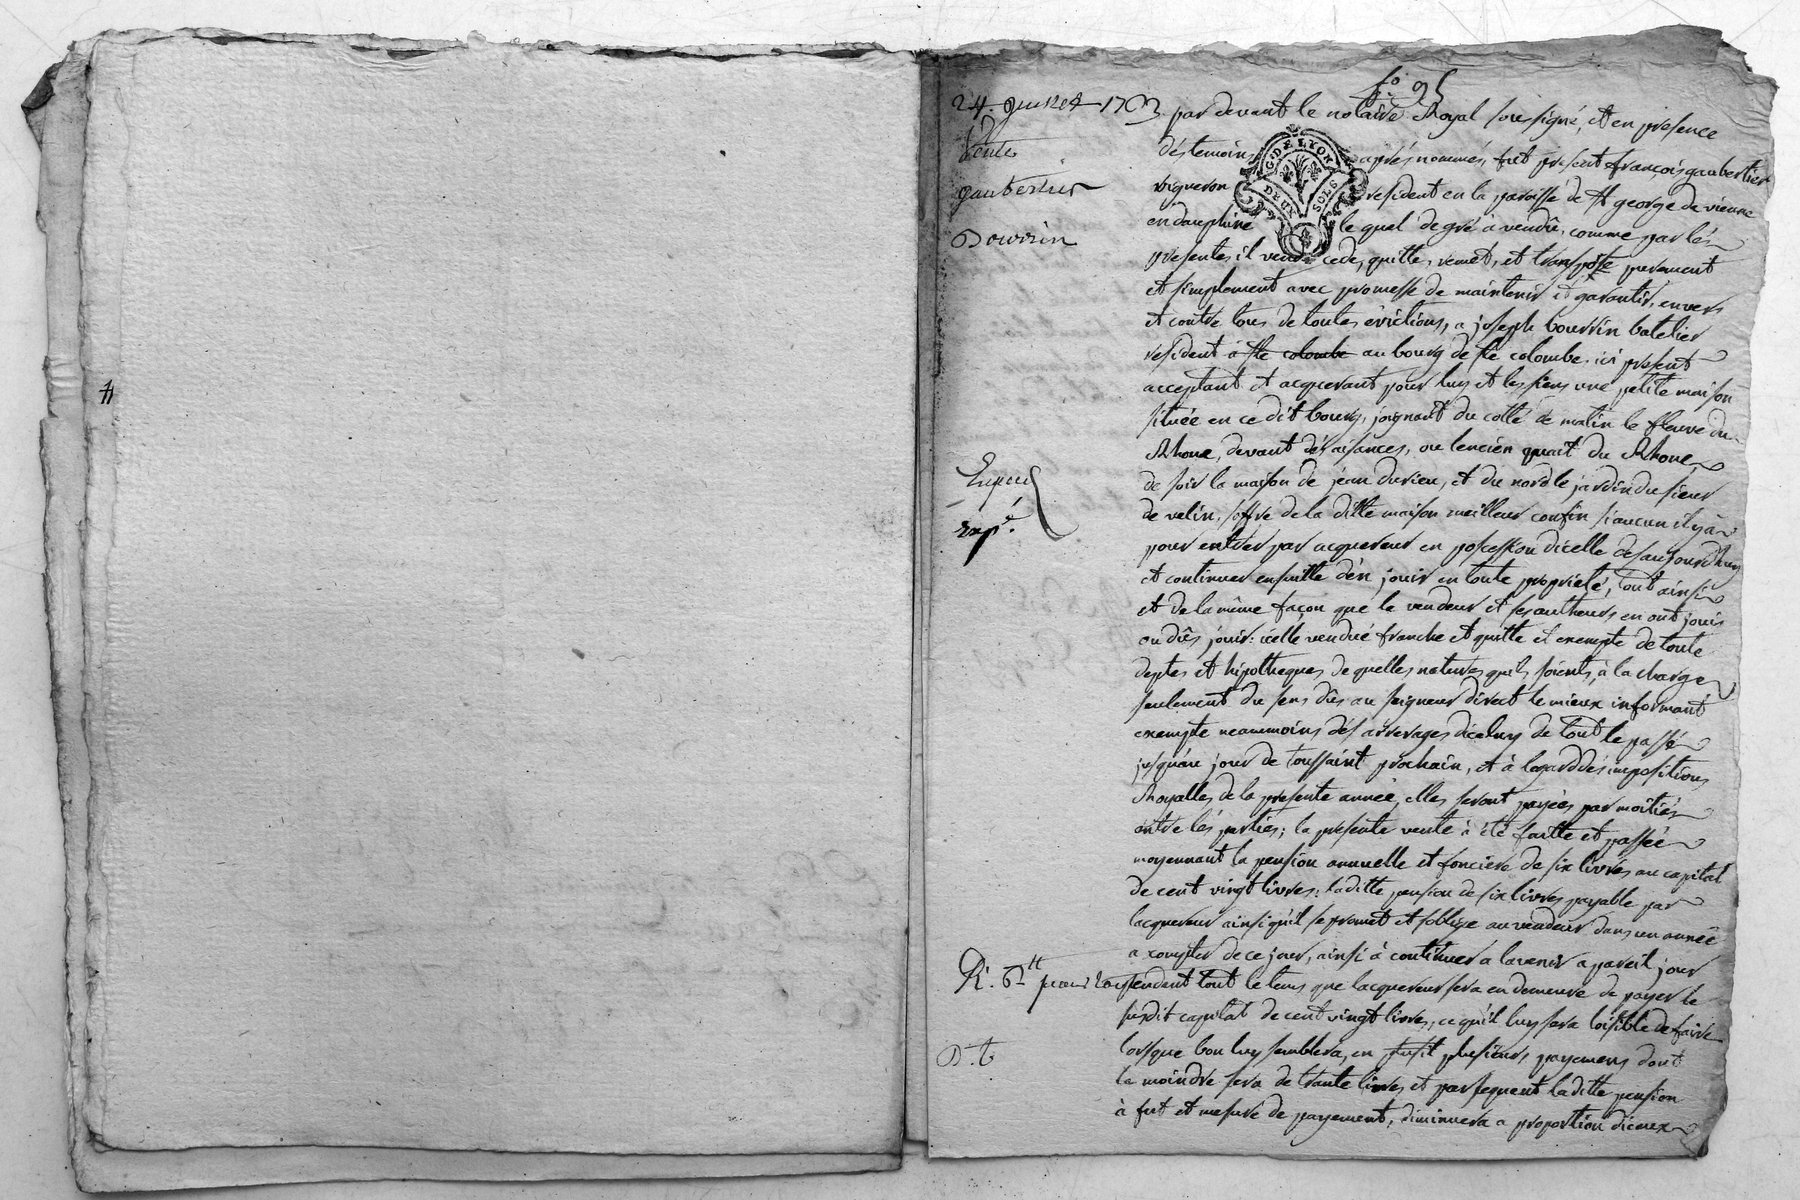 fo. 95
24. Juillet 17
Vente
gaubertier
Bouvrin
par devant le notaire Royal soussigné, et en presence
dés temoins aprés nommés, fut present francois gaubertier
vigneron resident en la paroisse de st george de vienne
en dauphiné le quel de gré à vendû, comme par lés
presentes il vend, cede, quitte, remét, et transporte purement
et simplement avec promesse de maintenir et garantir, envers
et contre tous de toutes évictions, a joseph bouvrin batelier
resident à ste colombe au bourg de ste colombe. ici present
acceptant et acquerant pour luy et les siens une petite maison
située en ce dit bourg, joignant du cotté de matin le fleuve du
Rhone, devant dés aisances, ou lencien quait du Rhone,
de soir la maison de jean durieu, et du nord le jardin du sieur
de velin, soffre de la ditte maison meilleur confin si aucun il y à
pour entrer par acquereur en possession dicelle dés aujourdhuy
et continuer ensuitte dén jouir en toute proprieté, tout ainsi
et de la même façon qué le vendeur et ses autheurs en ont joui
ou dûs jouir: icelle vendue franche et quitte et exempte de toute
deptes et hipotheques de quelles natures quils soients, à la charge
seulement du sens dûs au seigneur direct le mieux informant
exempte neanmoins dés arrerages diceluy de tout le passé
jusquau jour de toussaint prochain, et à légard dés impositions
Royalles de la presente année, elles seront payées par moitiés
entre lés parties; la presente vente à été faitte et passée
moyennant la pension annuelle et fonciere de six livres au capital
de cent vingt livres: laditte pension de six livres payable par
lacquereur ainsi quil se promet et soblige au vendeur dans un année
a compter de ce jour, ainsi à continuer a lavenir a pareil jour
R. 6tt
pendent tout le tems que lacquereur sera en demeure de payer le
susdit capital de cent vingt livres, ce quil luy sera loisible de faire
lorsque bon luy semblera, en plusieurs payemens dont
le moindre sera de trante livres et par sequent laditte pension
à fut et mesure de payement, diminuera a proportion diceux
Expedié
exp.é
D. t
G. DE LYON
DEUX SOLS